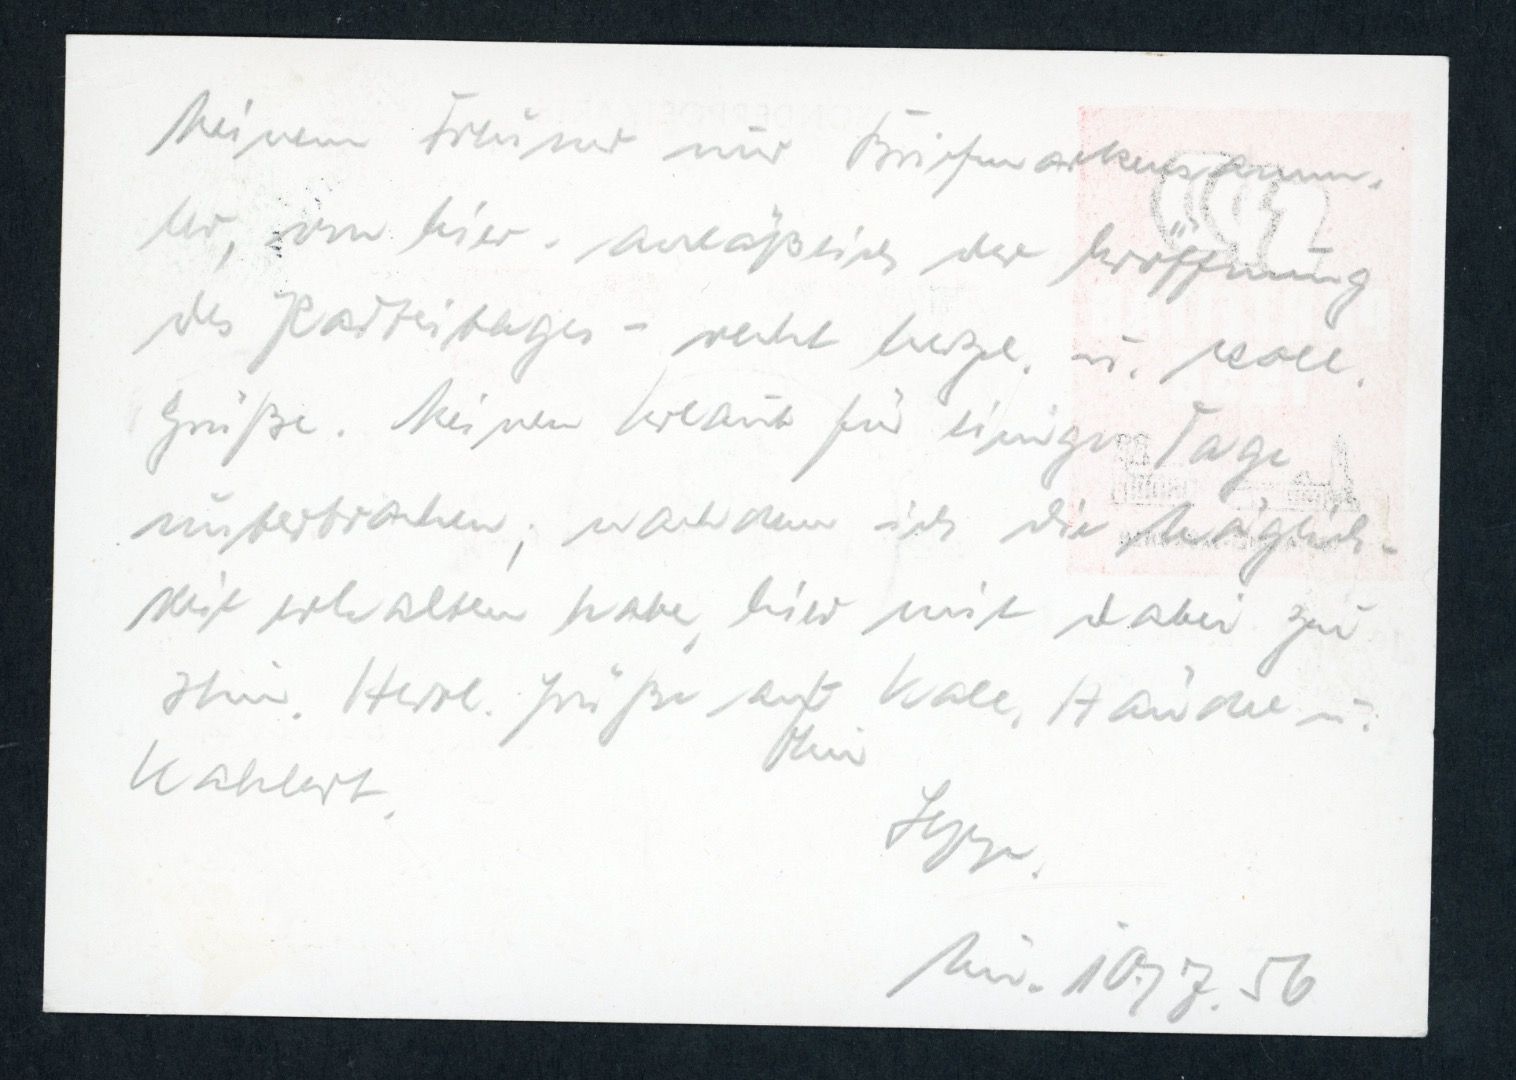 Meinem Freund und Briefmarkensamm-
ler, von hier - anläßlich der Eröffnung
des Parteitages - recht herzl. u. koll.
Grüße. Meinen Urlaub für einige Tage
unterbrochen, nachdem ich die Möglich-
keit erhalten habe, hier mit dabei zu
sein. Herzl. Grüße auch Koll. Händel u.
Kahlert.
Dein
Sepp.
Mü. 10/7. 56